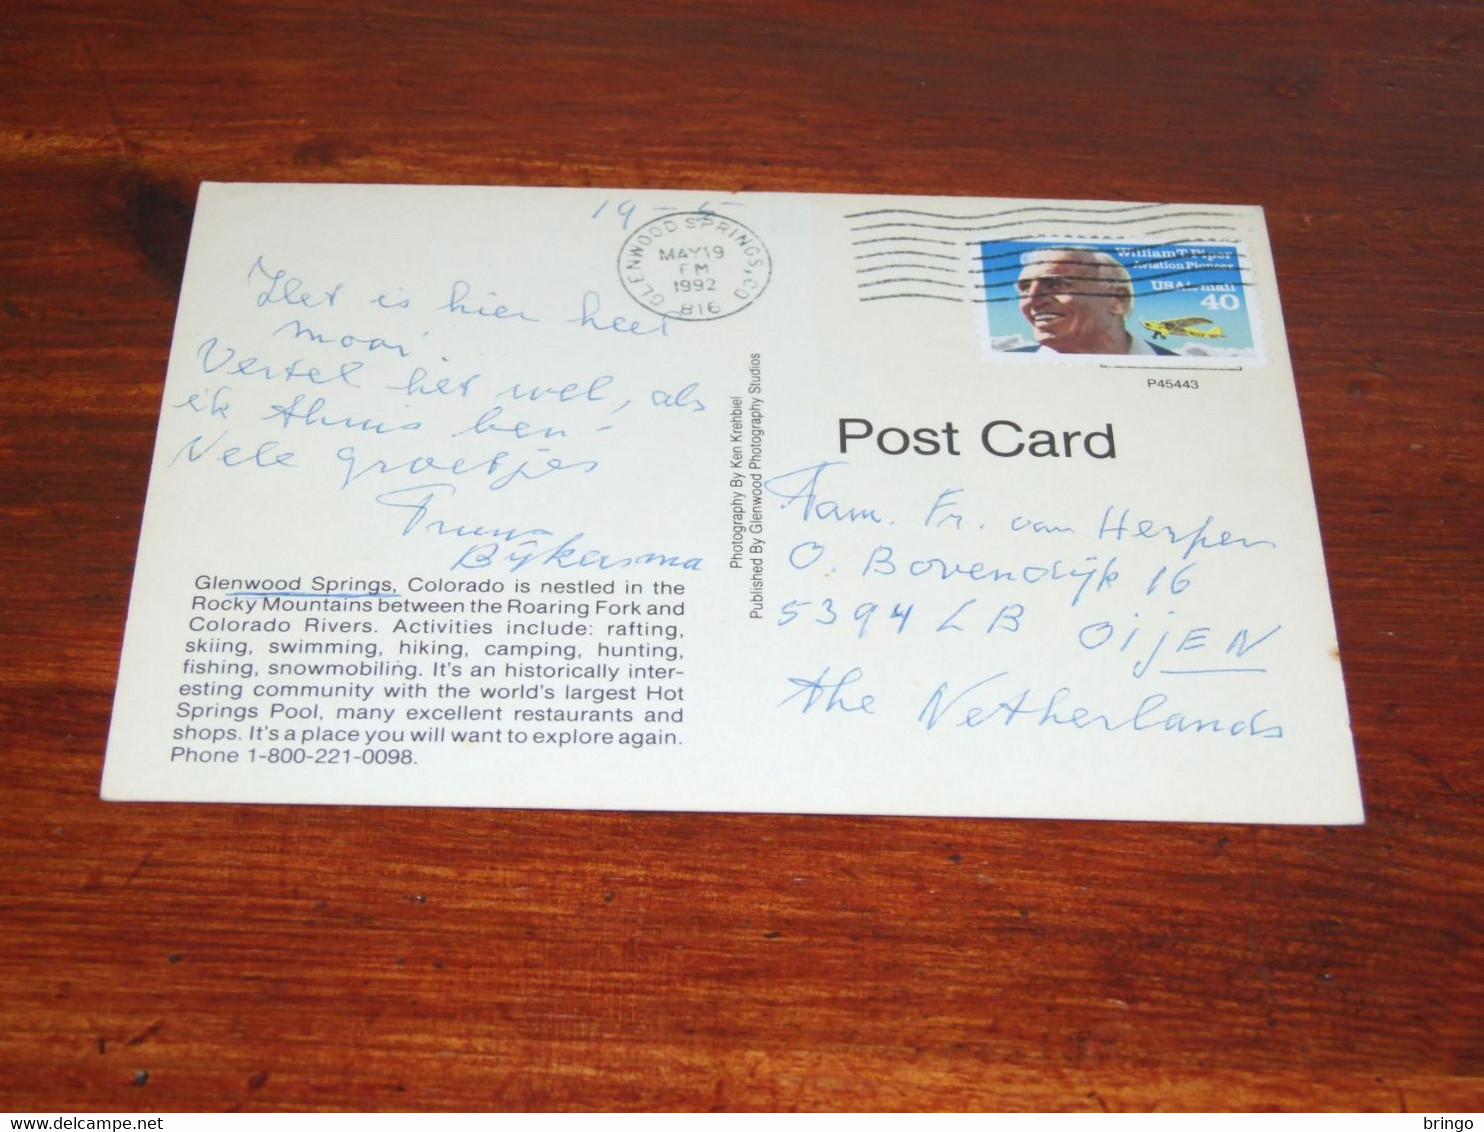 19-5
GLENWOOD SPRINGS, CO
MAY 19
PM
1992
816
William T. Piper
Aviation Pioneer
USAirmail
40
P45443
Het is hier heel
mooi.
Vertel het wel, als
ik thuis ben -
Vele groetjes
Truus
Bijkersma
Glenwood Springs, Colorado is nestled in the
Rocky Mountains between the Roaring Fork and
Colorado Rivers. Activities include: rafting,
skiing, swimming, hiking, camping, hunting,
fishing, snowmobiling. It's an historically inter-
esting community with the world's largest Hot
Springs Pool, many excellent restaurants and
shops. It's a place you will want to explore again.
Phone 1-800-221-0098.
Photography By Ken Krehbiel
Published By Glenwood Photography Studios
Post Card
Fam. Fr. van Herpen
O. Bovendijk 16
5394 LB OijEN
the Netherlands
delcampe.net
bringo